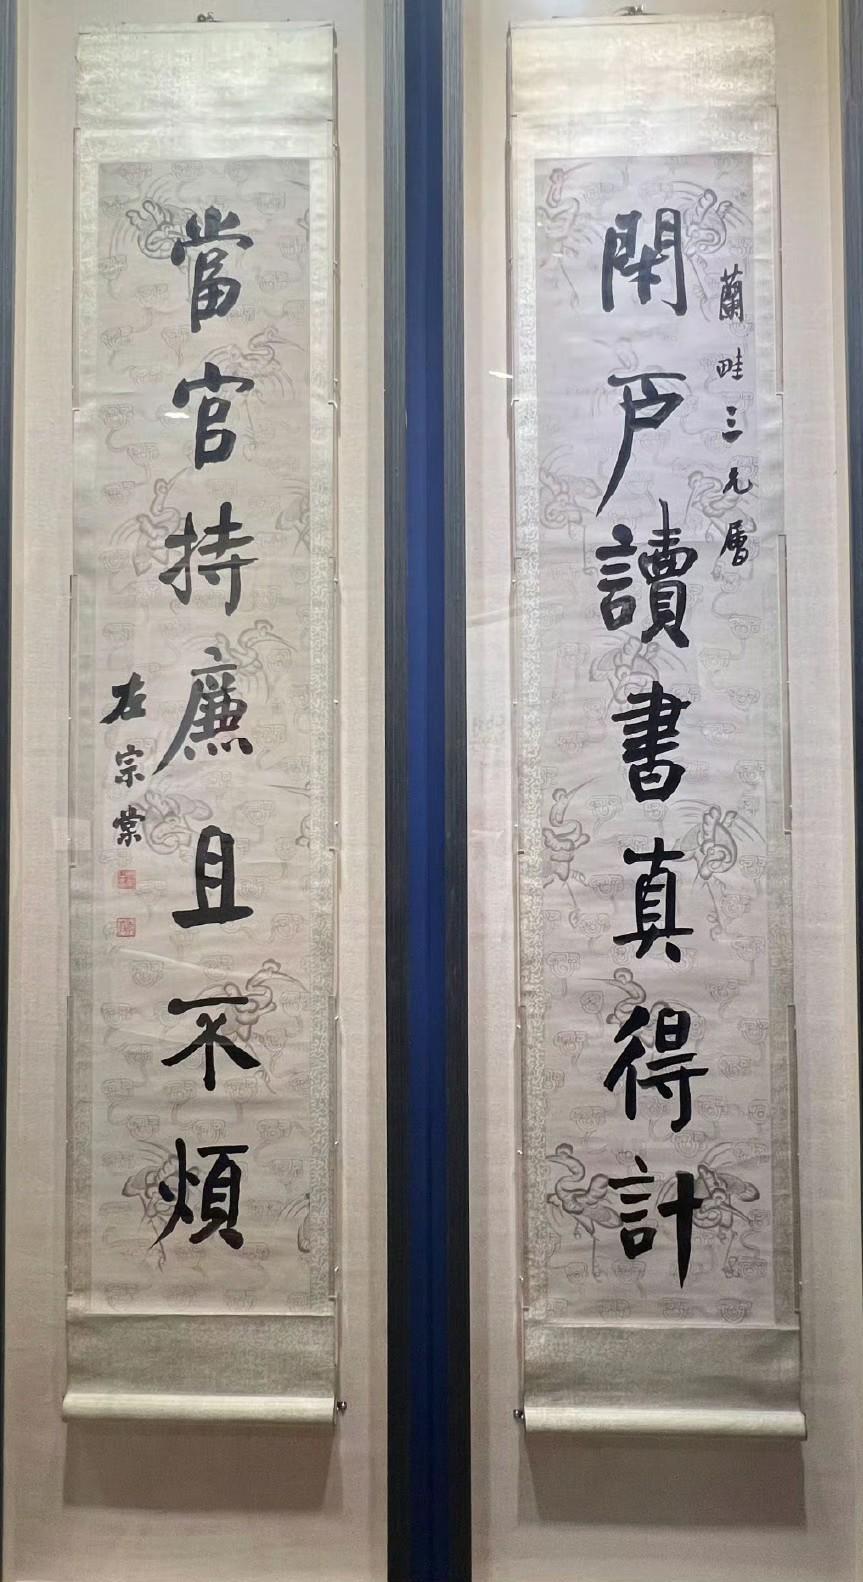 蘭畦三兄屬
閉戶讀書真得計
當官持廉且不煩
左宗棠